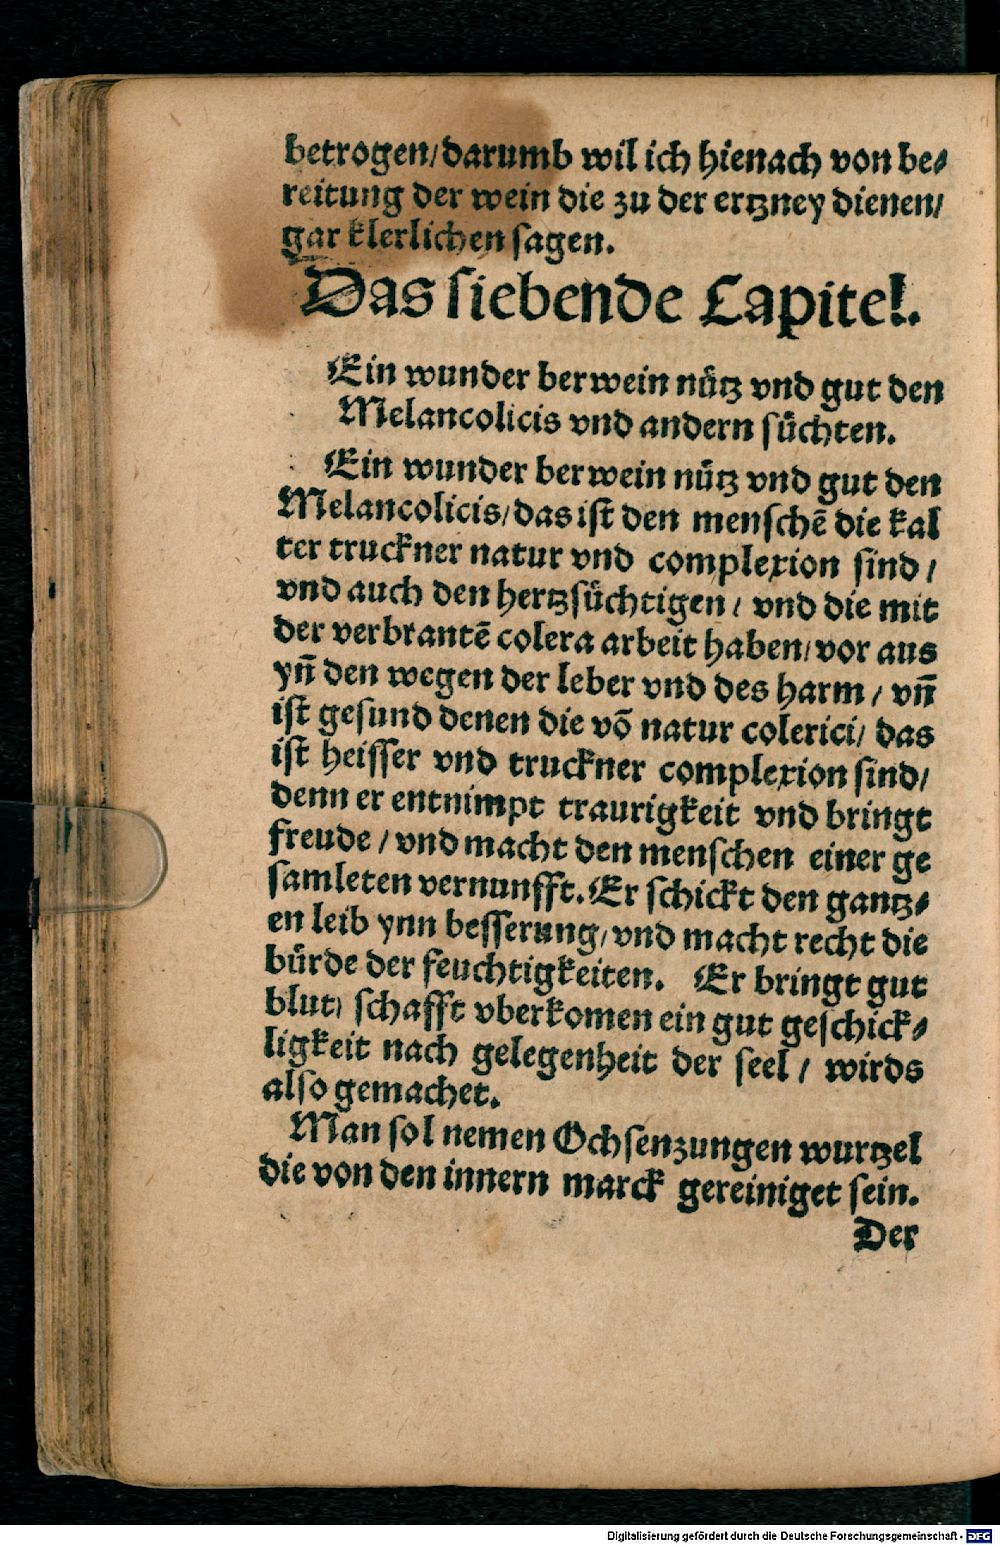 betrogen/darumb wil ich hienach von be⸗
reitung der wein die zu der ertzney dienen/
gar klerlichen sagen.
Das siebende Capitel.
Ein wunder berwein nütz vnd gut den
Melancolicis vnd andern süchten.
Ein wunder berwein nütz vnd gut den
Melancolicis/das ist den menschē die kal
ter truckner natur vnd complexion sind/
vnd auch den hertzsüchtigen/ vnd die mit
der verbrantē colera arbeit haben/vor aus
yn̄ den wegen der leber vnd des harm/ vn̄
ist gesund denen die vō natur colerici/ das
ist heisser vnd truckner complexion sind/
denn er entnimpt traurigkeit vnd bringt
freude/ vnd macht den menschen einer ge
samleten vernunfft. Er schickt den gantz⸗
en leib ynn besserung/vnd macht recht die
bürde der feuchtigkeiten. Er bringt gut
blut/ schafft vberkomen ein gut geschick⸗
ligkeit nach gelegenheit der seel/ wirds
also gemachet.
Man sol nemen Ochsenzungen wurtzel
die von den innern marck gereiniget sein.
Der
Digitalisierung gefördert durch die Deutsche Forschungsgemeinschaft - DFG